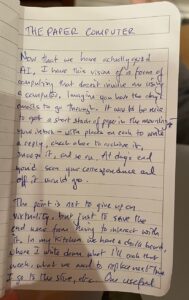 THE PAPER COMPUTER
Now that we have actually good
AI, I have this vision of a form of
computing that doesn't involve me using
a computer. Imagine you have the day's
emails to go through. It would be nice
to get a short stack of paper in the morning
your inbox - with places on each to write
a reply, check above to archive it,
snooze it, and so on. At day's end
you'd scan your correspondence and
off it would go.
The point is not to give up on
virtuality, but just to save the
end user from having to interact with
it. In my kitchen we have a chalk board,
where I write down what I'll cook that
week, what we need to replace next time
I go to the store, etc. One useful